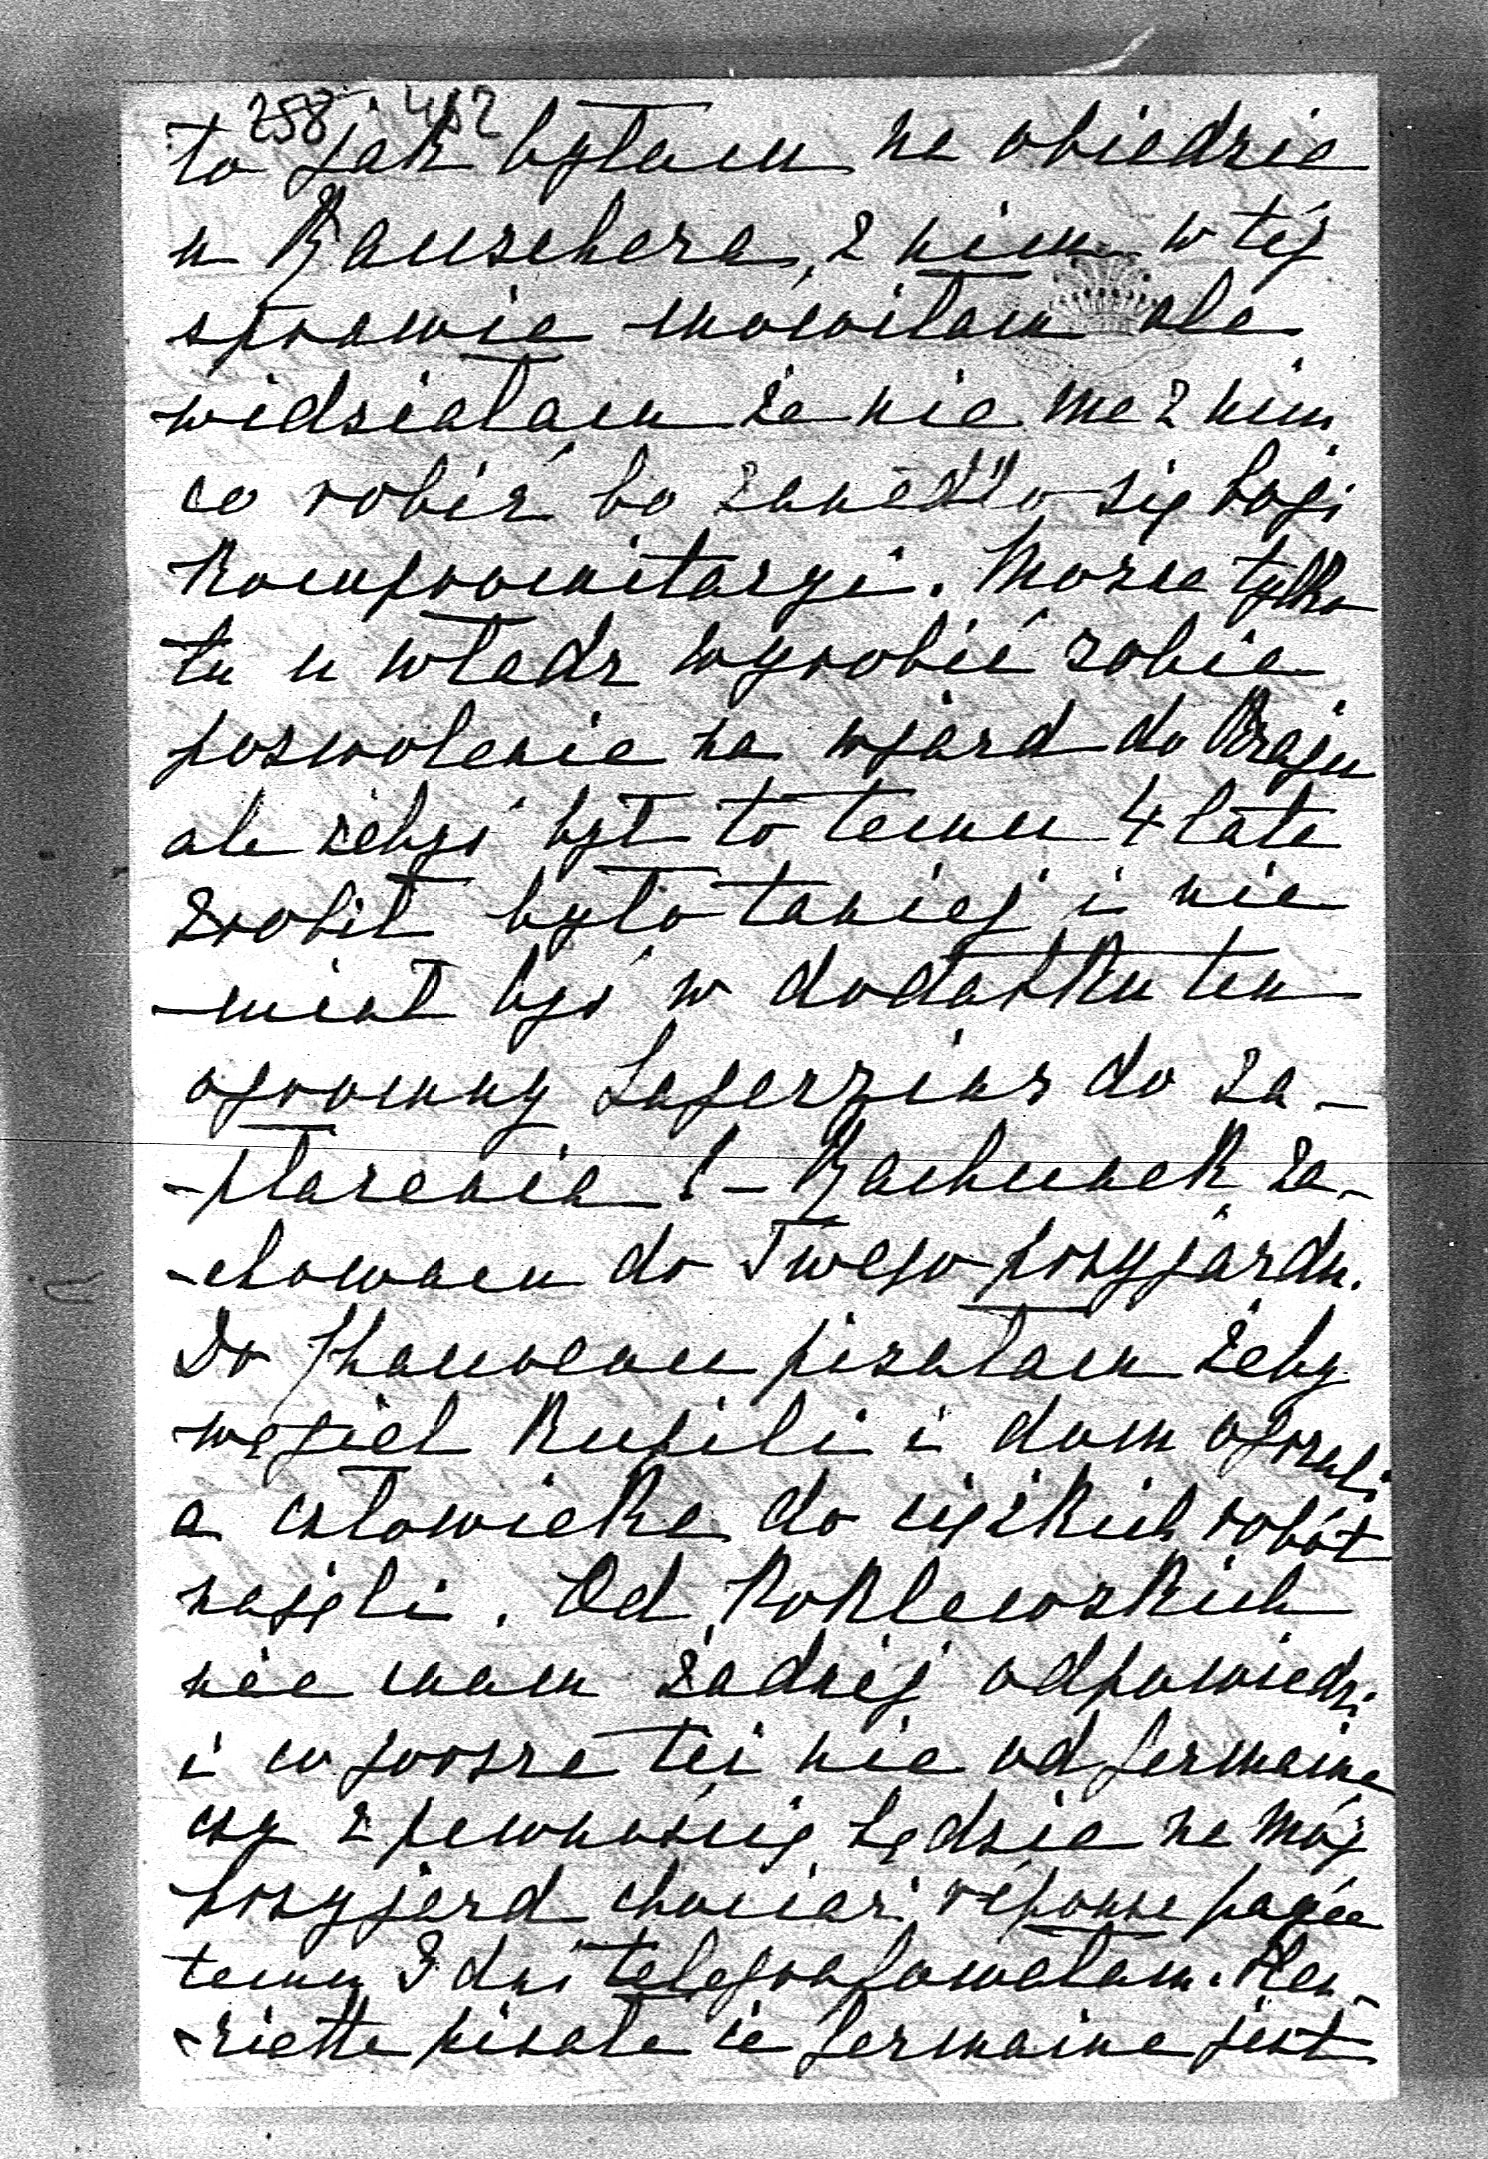 258 452
to jak byłam na obiedzie
u Rauschera, z nim w téj
sprawie mówiłam ale
widziałam że nie ma z nim
co robić bo zanadto się boji
kompromitacyi. Można tylko
tu u władz wyrobić sobie
pozwolenie na wjazd do Kraju
ale żebyś był to temu 4 lata
zrobił było taniej i nie
miał byś w dodatku ten
ogromny Lagerzins do za-
-płacenia! - Rachunek za-
-chowam do Twego przyjazdu.
Do pisałam żeby
węgiel kupili i dom ogrzali
a człowieka do ciężkich robót
najęli. Od Koklewskich
nie mam żadnéj odpowiedzi
i co gorsza téż nie od Germaine
czy z pewnością będzie na mój
przyjazd chociaż réponse payée
temu 3 dni telegrafowałam. Hen-
-riette pisała że Germaine jest